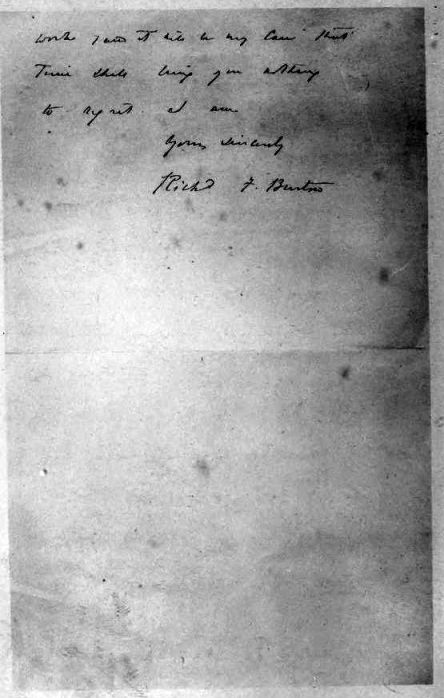 work and it will be my care that
Time shall bring you nothing
to regret. I am
Yours sincerely
Richd F. Burton